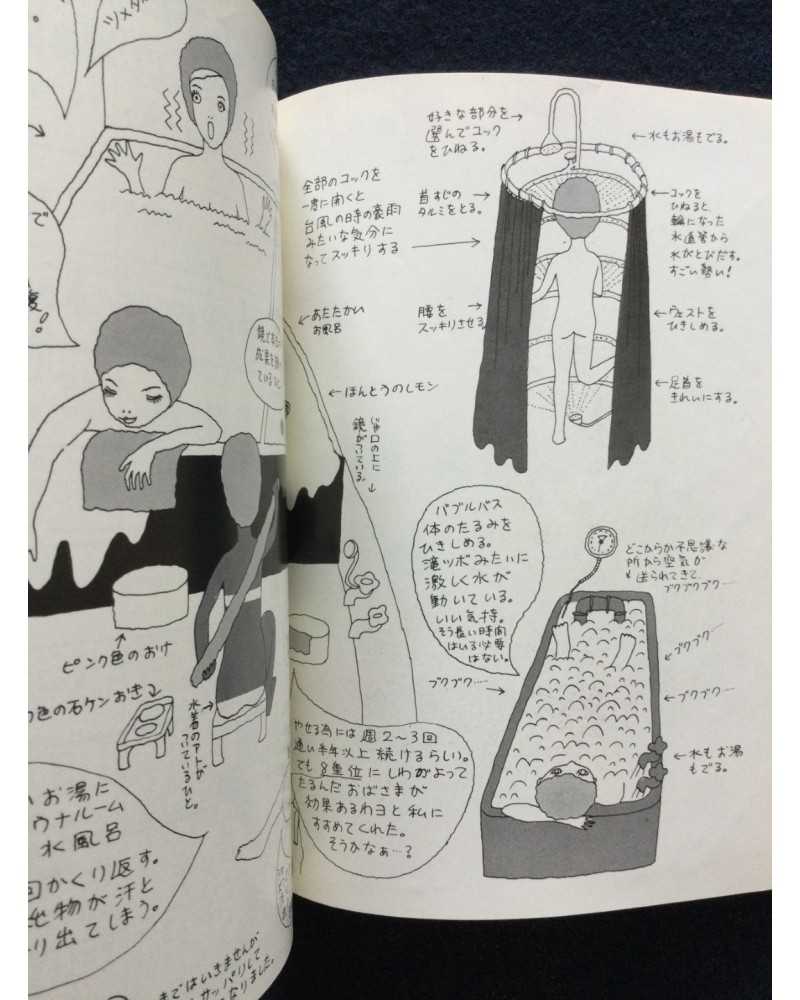 ツメタ
で
ピンク色のおけ
色の石ケンおき
水着のアトが
ついているひと。
お湯に
ウナルーム
水風呂
回かくり返す。
物が汗と
り出てしまう。
まではいきませんが
サッパリして
なりました。
好きな部分を
選んでコック
をひねる。
水もお湯もでる。
全部のコックを
一度に開くと
台風の日時の豪雨
みたいな気分に
なってスッキリする
首すじの
タルミをとる。
コックを
ひねると、
輪になった
水道管から
水がとびだす。
すごい勢い!
あたたかい
お風呂
腰を
スッキリさせる。
ウェストを
ひきしめる。
ほんとうのレモン
足首を
きれいにする。
じゃ口の上に
鏡がついている。
バブルバス
体のたるみを
ひきしめる。
滝ツボみたいに
激しく水が
動いている。
いい気持。
そう長い時間
はいる必要
はない。
どこからか不思議な
所から空気が
送られてきて
ブクブクブク…
ブクブク…
ブクブク…
ブクブク…
水もお湯
もでる。
やせる為には週2〜3回
通い半年以上続けるらしい。
でも8重位にしわがよって
たるんだおばさまが
効果あるわヨと私に
すすめてくれた。
そうかなぁ…?